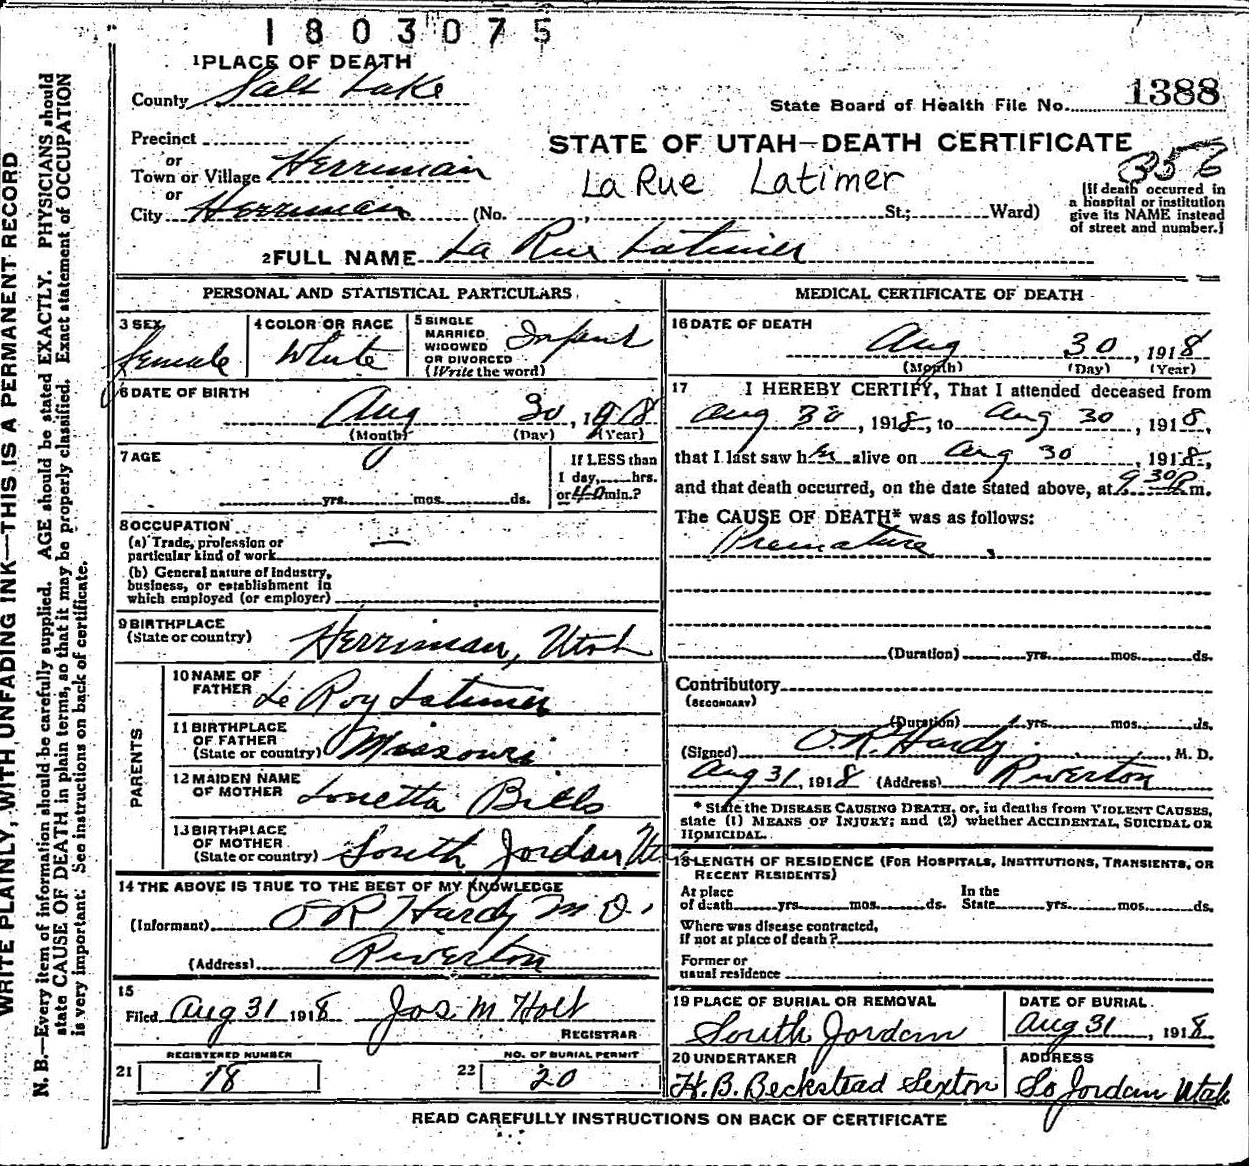 1803075
1 PLACE OF DEATH
County Salt Lake
State Board of Health File No. 1388
Precinct
STATE OF UTAH—DEATH CERTIFICATE
356
or
Town or Village Herriman
La Rue Latimer
or
City Herriman (No. , St.; Ward)
[If death occurred in
a hospital or institution
give its NAME instead
of street and number.]
2 FULL NAME La Rue Latimer
PERSONAL AND STATISTICAL PARTICULARS
3 SEX
Female
4 COLOR OR RACE
White
5 SINGLE
MARRIED
WIDOWED
OR DIVORCED
(Write the word)
Infant
6 DATE OF BIRTH
Aug 30, 1918
(Month) (Day) (Year)
7 AGE
yrs. mos. ds.
If LESS than
1 day, hrs.
or 40 min.?
8 OCCUPATION
(a) Trade, profession or
particular kind of work —
(b) General nature of industry,
business, or establishment in
which employed (or employer)
9 BIRTHPLACE
(State or country) Herriman, Utah
PARENTS
10 NAME OF
FATHER Le Roy Latimer
11 BIRTHPLACE
OF FATHER
(State or country) Missouri
12 MAIDEN NAME
OF MOTHER Lonetta Bills
13 BIRTHPLACE
OF MOTHER
(State or country) South Jordan Ut
14 THE ABOVE IS TRUE TO THE BEST OF MY KNOWLEDGE
(Informant) O R Hardy M.D.
(Address) Riverton
15
Filed Aug 31 1918 Jos. M Holt
REGISTRAR
REGISTERED NUMBER
21 78
NO. OF BURIAL PERMIT
22 20
MEDICAL CERTIFICATE OF DEATH
16 DATE OF DEATH
Aug 30, 1918
(Month) (Day) (Year)
17 I HEREBY CERTIFY, That I attended deceased from
Aug 30, 1918, to Aug 30, 1918,
that I last saw her alive on Aug 30 1918,
and that death occurred, on the date stated above, at 9 30 P m.
The CAUSE OF DEATH* was as follows:
Premature
(Duration) yrs. mos. ds.
Contributory
(SECONDARY)
(Duration) yrs. mos. ds.
(Signed) O.R. Hardy, M. D.
Aug 31, 1918 (Address) Riverton
* State the DISEASE CAUSING DEATH, or, in deaths from VIOLENT CAUSES,
state (1) MEANS OF INJURY; and (2) whether ACCIDENTAL, SUICIDAL OR
HOMICIDAL.
18 LENGTH OF RESIDENCE (FOR HOSPITALS, INSTITUTIONS, TRANSIENTS, OR
RECENT RESIDENTS)
At place
of death yrs. mos. ds.
In the
State yrs. mos. ds.
Where was disease contracted,
if not at place of death?
Former or
usual residence
19 PLACE OF BURIAL OR REMOVAL
South Jordan
DATE OF BURIAL
Aug 31, 1918
20 UNDERTAKER
H. B. Beckstead Sexton
ADDRESS
So Jordan Utah
READ CAREFULLY INSTRUCTIONS ON BACK OF CERTIFICATE
WRITE PLAINLY, WITH UNFADING INK—THIS IS A PERMANENT RECORD
N. B.—Every item of information should be carefully supplied. AGE should be stated EXACTLY. PHYSICIANS should
state CAUSE OF DEATH in plain terms, so that it may be properly classified. Exact statement of OCCUPATION
is very important. See instructions on back of certificate.